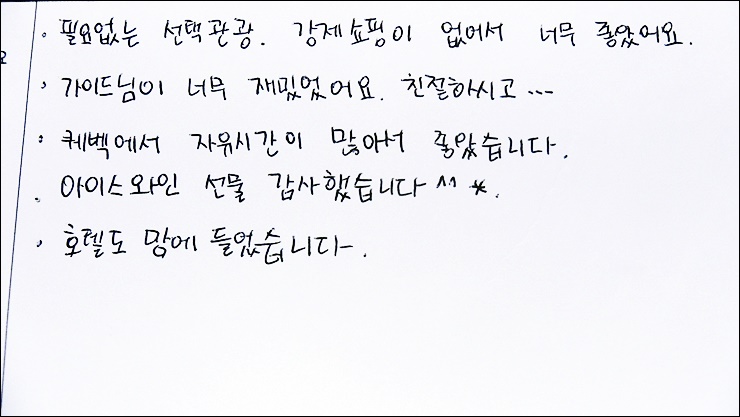 · 필요없는 선택관광. 강제쇼핑이 없어서 너무 좋았어요.
· 가이드님이 너무 재밌었어요. 친절하시고...
· 퀘벡에서 자유시간이 많아서 좋았습니다.
· 아이스와인 선물 감사했습니다 ^^*.
· 호텔도 맘에 들었습니다.